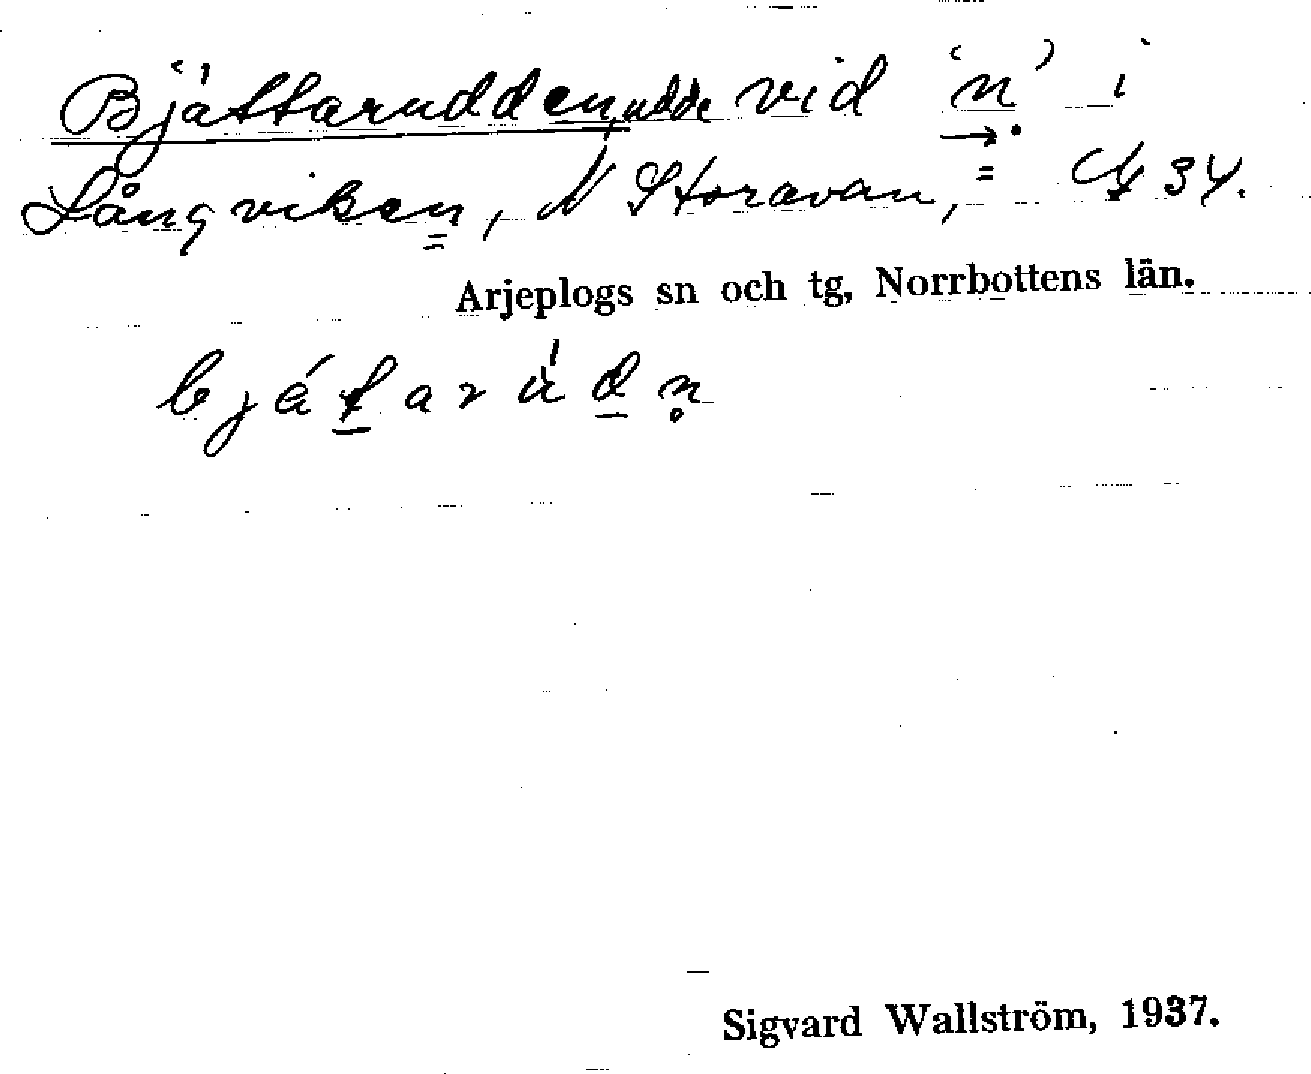 Bjättarudden, udde vid 'n' i
Långviken, N Storavan, 34.
Arjeplogs sn och tg, Norrbottens län.
bjátarúdn̥
Sigvard Wallström, 1937.